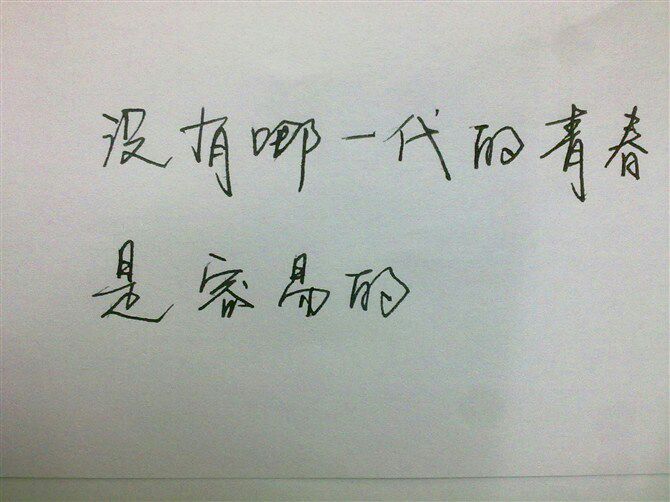 没有哪一代的青春
是容易的